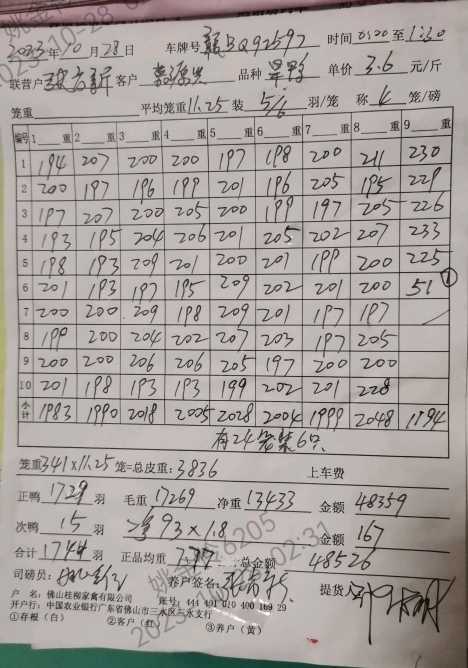 2023年10月28日 车牌号 赣BQ92597 时间 0:00 至 1:30
联营户 客户 品种 单价 3.6 元/斤
笼重 平均笼重11.25 装 5/6 羽/笼 称 4 笼/磅
编号 1 重 2 重 3 重 4 重 5 重 6 重 7 重 8 重 9 重
1 194 207 200 200 197 198 200 211 230
2 200 197 196 199 201 196 205 195 229
3 197 207 200 205 200 199 197 205 226
4 193 195 204 206 201 205 202 207 233
5 198 193 209 201 200 207 199 200 225
6 201 193 197 195 209 202 201 200 51 ①
7 200 200 209 198 209 201 197 197
8 199 200 204 202 207 203 197 205
9 200 200 206 206 205 197 200 200
10 201 198 193 193 199 202 201 228
小计 1983 1990 2018 2005 2028 2004 1999 2048 1194
有24笼装6只
笼重341×11.25 笼=总皮重:3836 上车费
正鸭 1729 羽 毛重 17269 净重 13433 金额 48359
次鸭 15 羽 净93×1.8 金额 167
合计 1744 羽 正品均重 7.77 总金额 48526
司磅员: 养户签名: 提货人
户 名:佛山桂柳家禽有限公司 账号:444 491 010 400 169 29
开户行:中国农业银行广东省佛山市三水区三水支行
①存根(白) ②客户(红) ③养户(黄)